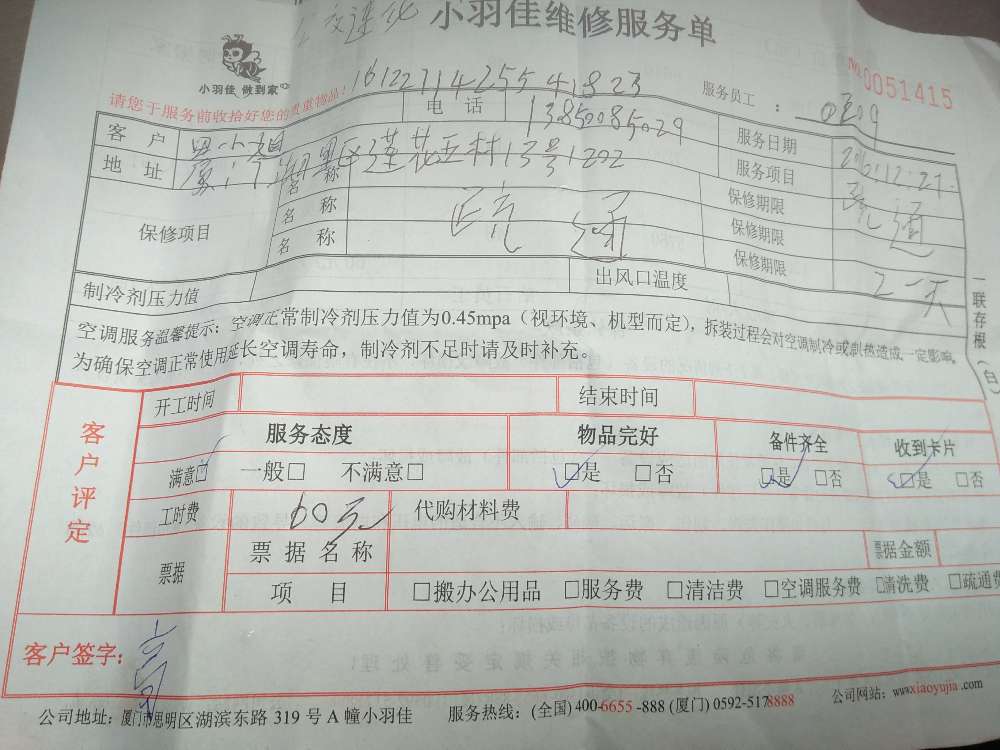 小羽佳维修服务单
小羽佳 做到家
161227142554 41823
服务员工：
№0051415
请您于服务前收拾好您的贵重物品！
客户 电话 13850085029 服务日期 2016.12.27.
地址 厦门湖里区莲花五村13号1202 服务项目
保修项目
名称 保修期限
名称 保修期限
名称 保修期限
疏通
制冷剂压力值 出风口温度
空调服务温馨提示：空调正常制冷剂压力值为0.45mpa（视环境、机型而定），拆装过程会对空调制冷或制热造成一定影响。
为确保空调正常使用延长空调寿命，制冷剂不足时请及时补充。
一联存根（白）
客户评定
开工时间 结束时间
服务态度 物品完好 备件齐全 收到卡片
满意☑ 一般□ 不满意□ ☑是 □否 ☑是 □否 ☑是 □否
工时费 60元 代购材料费
票据 票据名称 票据金额
项目 □搬办公用品 □服务费 □清洁费 □空调服务费 □清洗费 □疏通费
客户签字：
公司地址：厦门市思明区湖滨东路 319 号 A 幢小羽佳 服务热线：(全国) 400-6655-888 (厦门) 0592-5178888 公司网站：www.xiaoyujia.com